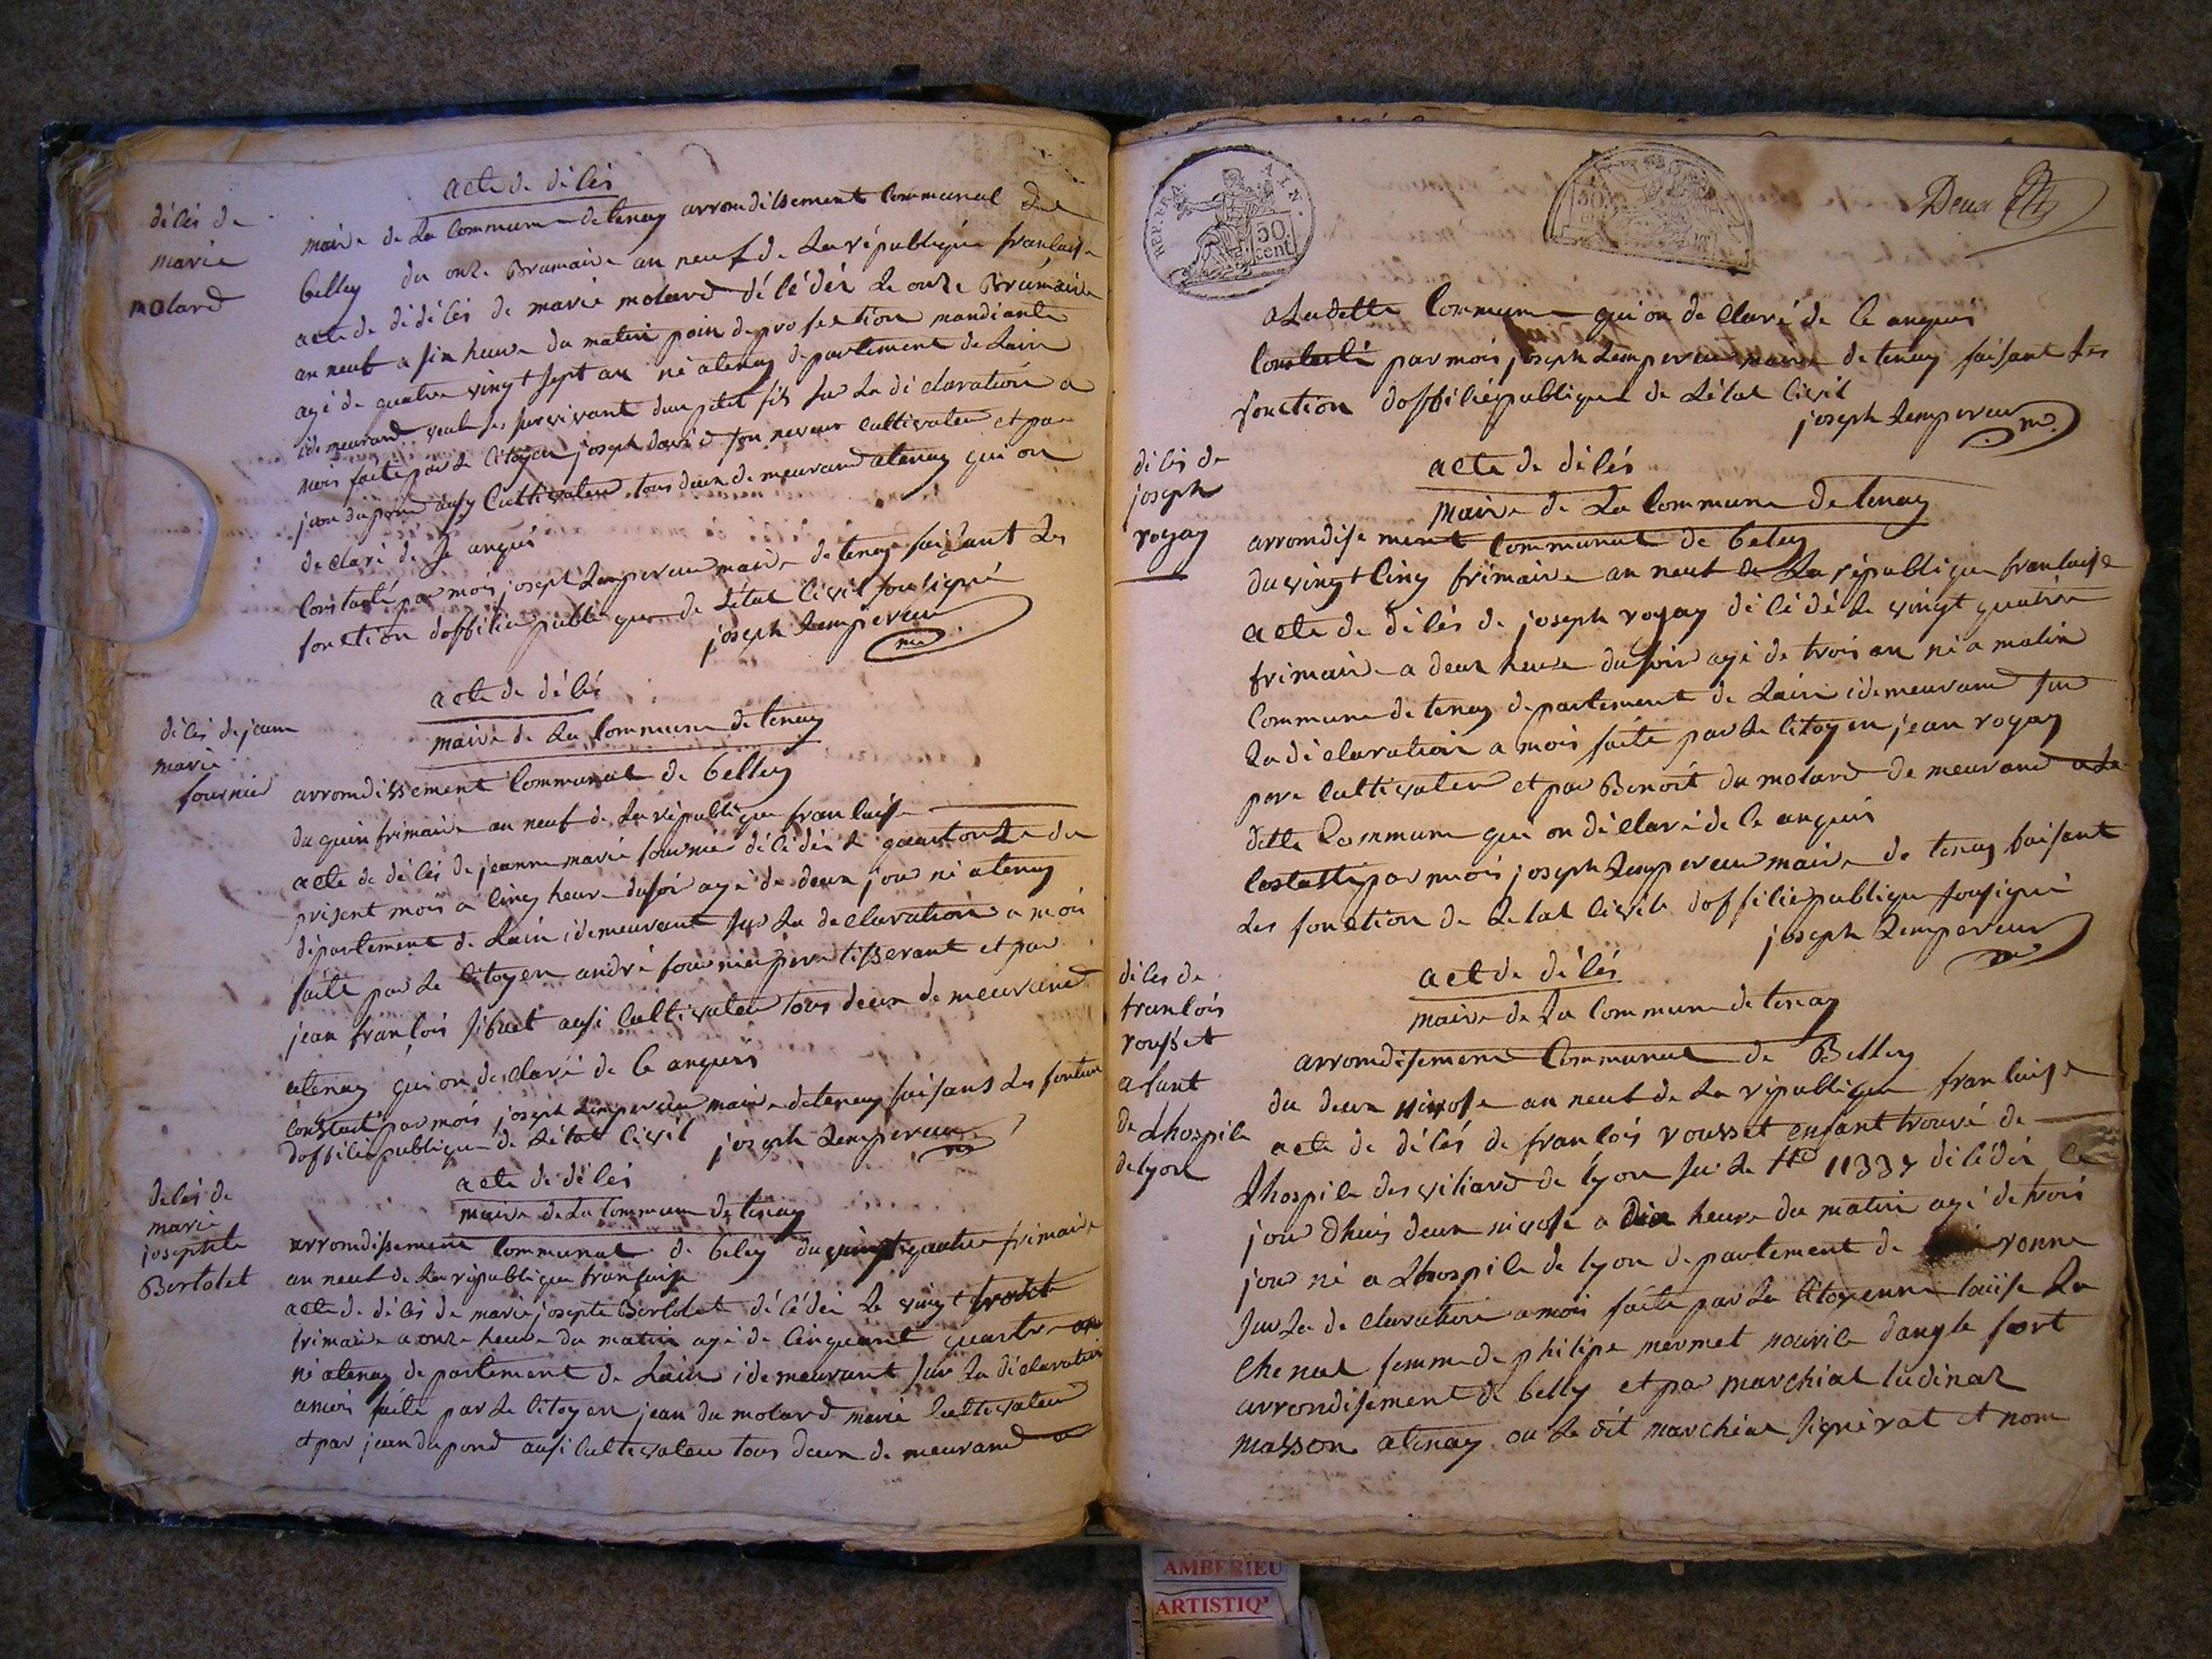 acte de déces
déces de
marie
molard
maire de La Commune de tenay arromdissement Communal de
belley du onze Brumaire an neuf de La république francaise
acte de dédéces de marie molard décédéé Le onze Brumaire
an neuf a six heure du matin poin de profession mandiante
agé de quatre vingt sept an né atenay departement de Lain
idemeurand survivant dun petit fils sur La déclaration a
moi faite par Le citoyen joseph david son neveux cultivateur et par
jean dupond ausy Cultivateur tous deux demeurand atenay qui on
déclaré de
Constaté par moi joseph Lempereur maire de tenay faisant Les
fonction dofficié publique de Létat Civil sousigné
joseph Lempereur
acte de décé
déces de jeane
marie
fournier
maire de La Commune de tenay
arromdissement Communal de belley
du quin frimaire an neuf de La république francaise
acte de déces de jeanne marie fournié décédéé Le quatorze du
présent mois a cinq heure du soi agé de deux jour né atenay
département de Lain idemeurant sur La déclaration a moi
faite par Le citoyen andré fournier pere tisserant et par
jean francois sibuet ausi cultivateur tous deux demeurand
atenay qui on desclaré de ce anquis
constaté par moi joseph Lempereur maire de tenay faisans Les fontion
dofficié publique de Létat civil joseph Lempereur
acte de déces
deces de
marie
josephte
Bertolet
maire de La Commune de tenay
arromdissement communal de beley du vingt quatre frimaire
an neuf de La république francaise
acte de déces de marie josepte Bertolet décédéé Le vingt trois
frimaire a onze heure du matin agé de cinquant quatre an
né atenay departement de Lain idemeurant sur La déclaration
amoi faite par Le citoyen jean du molard marie cultivateur
et par jean dupond ausi cultivateur tous deux demeurand a
REP. FRA. AIN.
50
cent
50
Deux
a Ladette Commune qui on declaré de ce anquis
Constaté par moi joseph Lempereur maire de tenay faisant Les
fonction dofficié publique de Létat Civil
joseph Lempereur
acte de déces
déces de
joseph
royay
maire de La Commune de tenay
arromdisement communal de beley
du vingt cinq frimaire an neuf de La république francaise
acte de déces de joseph royay décédé Le vingt quatre
frimaire a deux heure du soir agé de trois an né a malix
Commune de tenay departement de Lain idemeurand sur
La déclaration a moi faite par Le citoyen jean royay
pere cultivateur et par Benoit du molard demeurand a La
dette Commune qui on déclaré de ce anquis
par moi joseph Lempereur maire de tenay faisant
Les fonction de Letat civile dofficié publique sousigné
joseph Lempereur
act de déces
déces de
francois
rousset
afant
de Lhospile
de lyon
maire de La Commune de tenay
arromdisement Communal de Belley
du deux nivose an neuf de La république francaise
acte de déces de francois rousset enfant trouvé de
Lhospile des viliard de lyon sur Le 11337 décédé ce
jour dhuis deux nivose a dix heure du matin agé de trois
jour né a Lhospile de lyon departement de ronne
sur La declaration a moi faite par La citoyenne louise La
Chenal femme de philipe mermet nourice dangle fort
arrondisement de belley et par marchial
masson atenay ou Le dit marchial signérat et nom
AMBERIEU
ARTISTIQ'